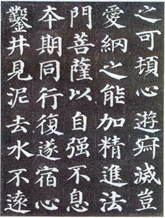 之可頂心遊寂滅豈
愛納之能加精進法
門菩薩以自强不息
本期同行復遂宿心
鑿井見泥去水不遠